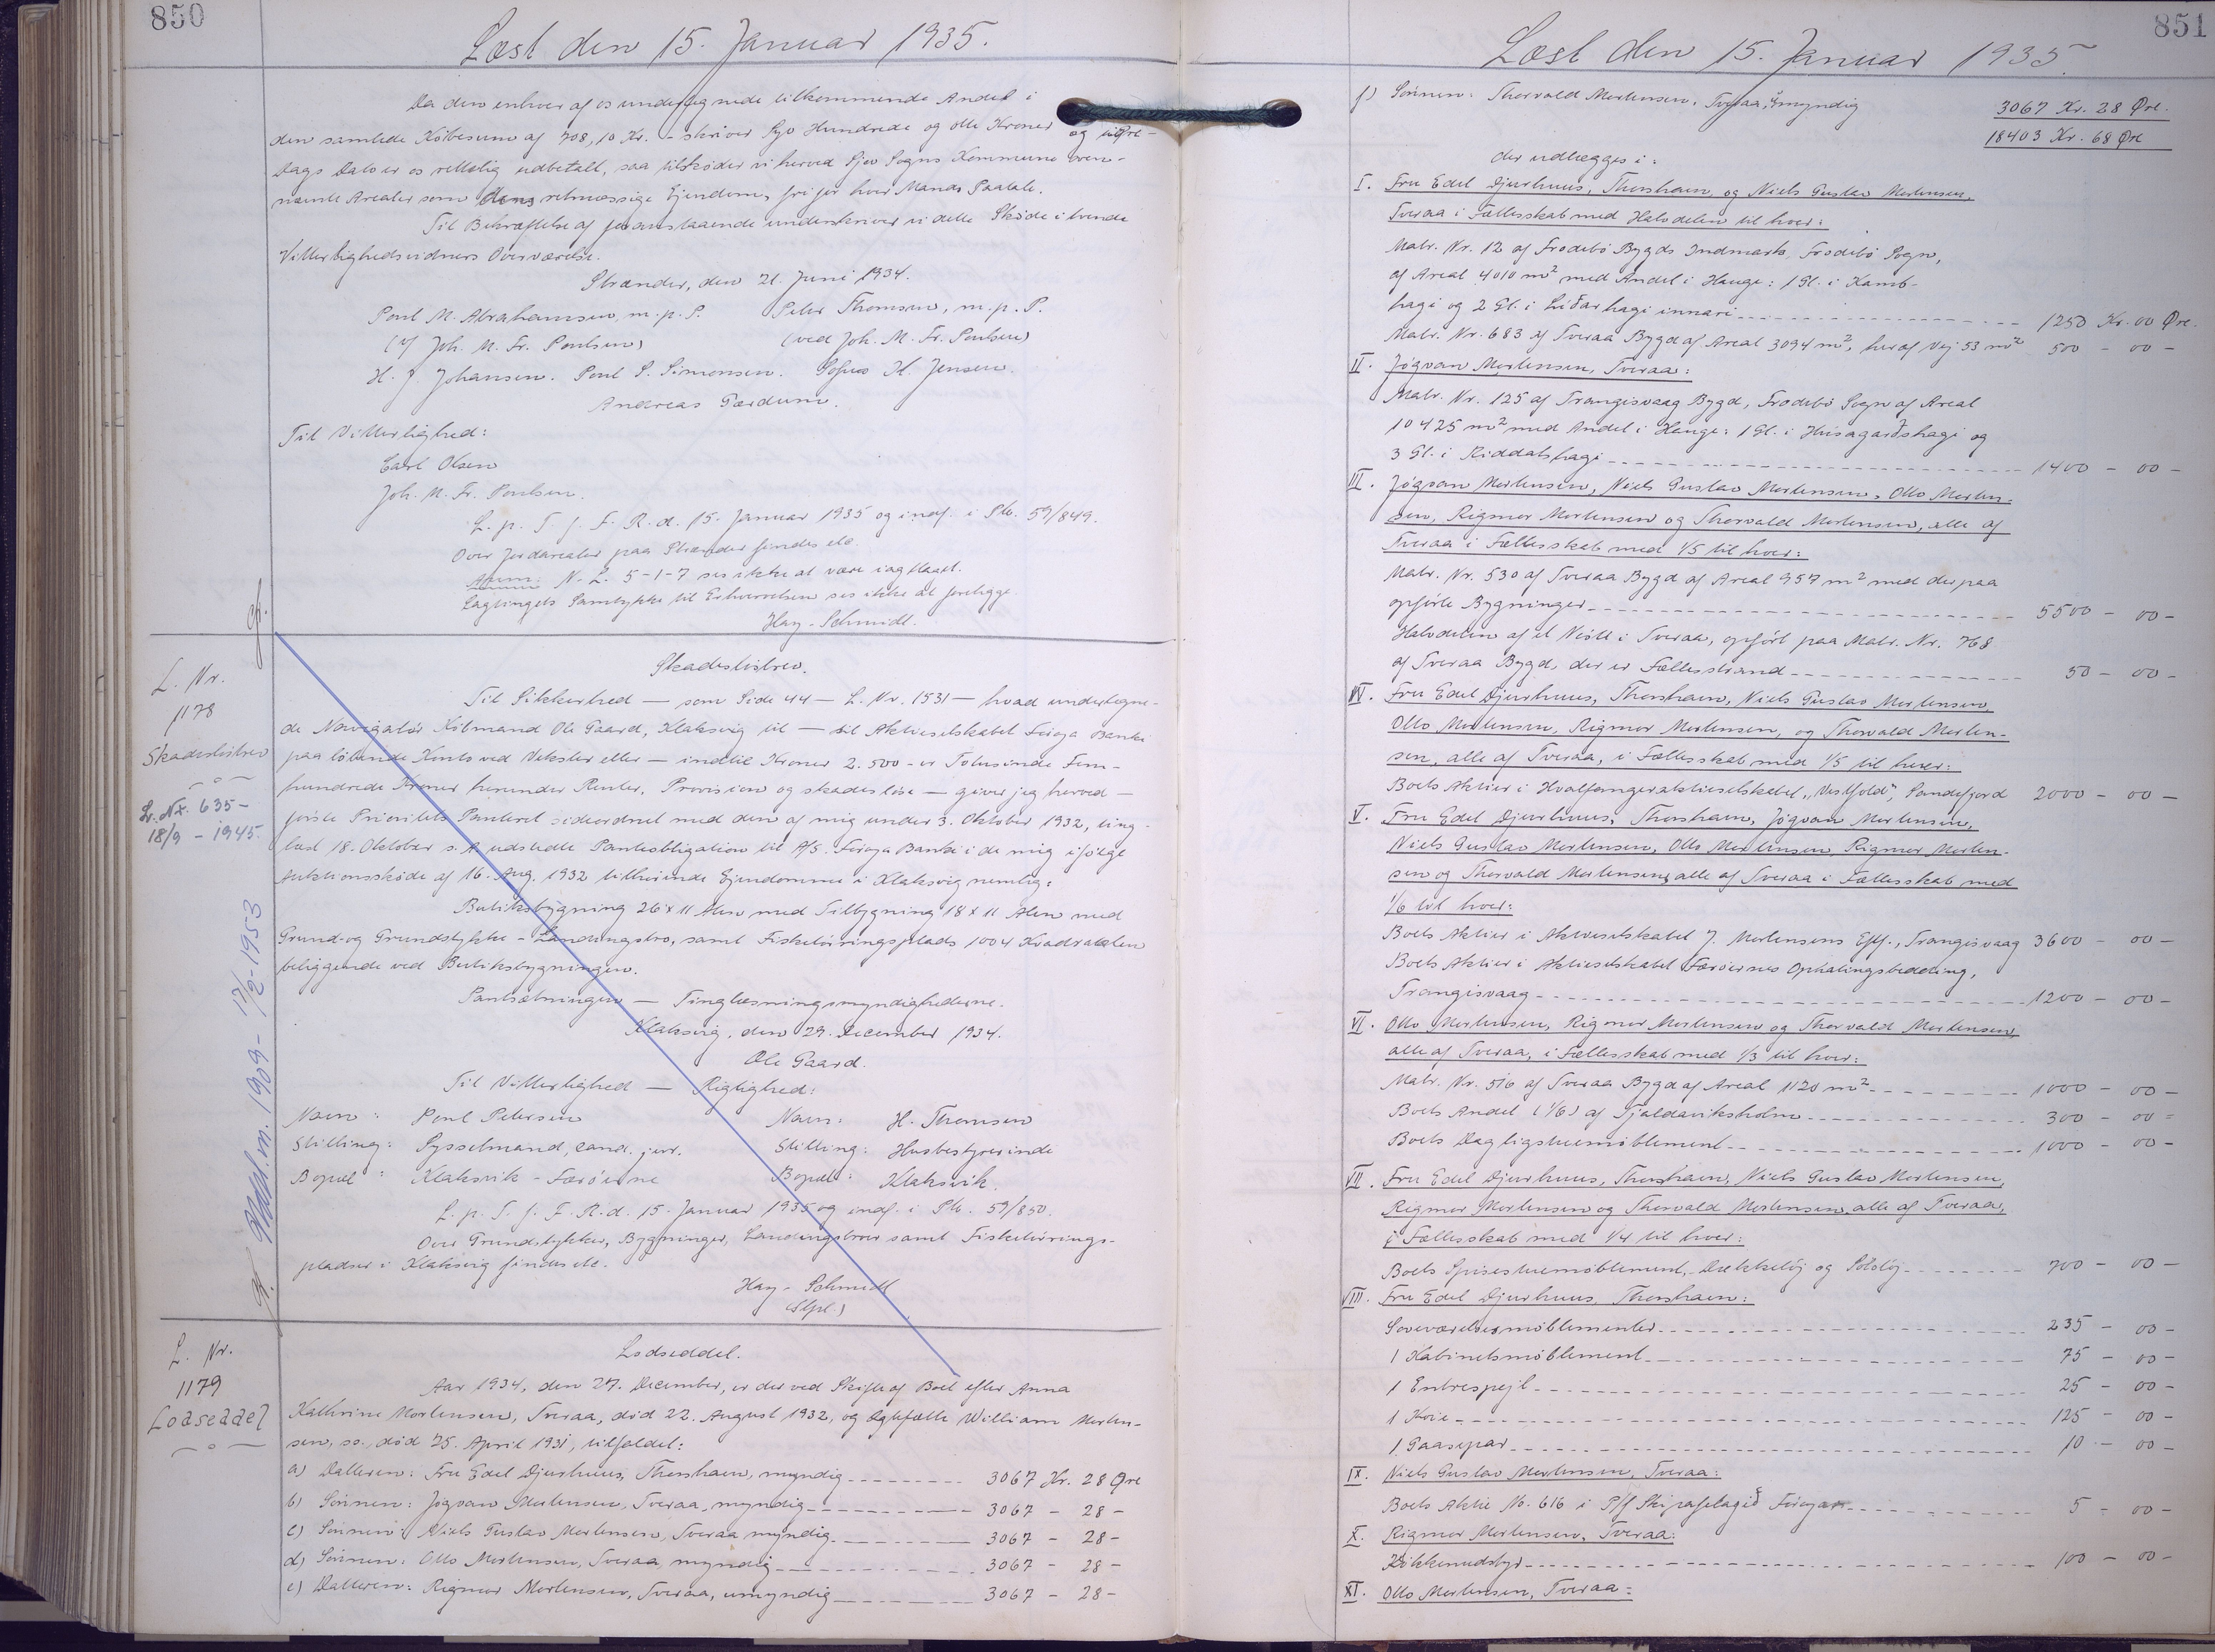 850
Læst den 15. Januar 1935.
Da den enhver af os undertegnede tilkommende Andel i
den samlede Köbesum af 708,10 Kr. - skriver Syv Hundrede og otte Kroner og ti Øre -
Dags Dato er os rettelig udbetalt, saa tilskøder vi herved Sjov Sogns Kommune oven-
nævnte Arealer som dens retmæssige Ejendom, fri for hver Mands Paatale.
Til Bekræftelse af foranstaaende underskriver vi dette Skøde i tvende
Vitterlighedsvidners Overværelse.
Strænder, den 21. Juni 1934.
Poul M. Abrahamsen, m.p.P. Peter Thomsen, m.p.P.
(v/ Joh. M. Fr. Poulsen) (ved Joh. M. Fr. Poulsen)
H. J. Johansen. Poul S. Simonsen. Sofus H. Jensen.
Andreas Gærdum.
Til Vitterlighed:
Carl Olsen
Joh. M. Fr. Poulsen.
L. p. T. f. F. R. d. 15. Januar 1935 og indf. i Pb. 59/849.
Over Jordarealer paa Strænder findes ele.
Anm: N. L. 5-1-7 ses ikke at være iagttaget.
Lagtingets Samtykke til Erhvervelsen ses ikke at foreligge.
Hay-Schmidt.
L. Nr.
1178
Skadesløsbrev
Lr. Nr. 635-
18/9 - 1945.
Udsl. m. 1909- 17/2-1953
Skadesløsbrev.
Til Sikkerhed — som Side 44 — L. Nr. 1531 — hvad undertegne-
de Navigatör Köbmand Ole Gaard, Klaksvig til — til Aktieselskabet Føroya Banki
paa löbende Konto ved Veksler eller — indtil Kroner 2.500 - er Totusinde Fem-
hundrede Kroner herunder Renter, Provision og skadeslöse — giver jeg herved —
förste Prioritets Panteret sideordnet med den af mig under 3. Oktober 1932, ting-
læst 18. Oktober s. A. udstedte Panteobligation til A/S. Føroya Banki i de mig ifölge
Auktionsskøde af 16. Aug. 1932 tilhörende Ejendomme i Klaksvig nemlig:
Butiksbygning 26 x 11 Alen med Tilbygning 18 x 11 Alen med
Grund og Grundstykke - Landingsbro, samt Fisketörringsplads 1004 Kvadratalen
beliggende ved Butiksbygningen.
Pantsætningen — Tinglæsningsmyndighederne.
Klaksvig, den 29. December 1934.
Ole Gaard.
Til Vitterlighed — Rigtighed:
Navn: Poul Petersen Navn: H. Thomsen
Stilling: Sysselmand, cand. jur. Stilling: Husbestyrerinde
Bopæl: Klaksvik - Færöerne Bopæl: Klaksvik.
L. p. T. f. F. R. d. 15. Januar 1935 og indf. i Pb. 59/850.
Over Grundstykker, Bygninger, Landingsbroer samt Fisketörrings-
pladser i Klaksvig findes ele.
Hay-Schmidt
L. Nr.
1179
Lodseddel
Lodseddel.
Aar 1934, den 27. December, er der ved Skifte af Boet efter Anna
Kathrine Mortensen, Tveraa, död 22. August 1932, og Ægtefælle William Morten-
sen, ss., död 25. April 1931, tilfaldet:
a) Datteren: Fru Edel Djurhuus, Thorshavn, myndig 3067 Kr. 28 Øre
b) Sönnen: Jógvan Mortensen, Tveraa, myndig 3067 - 28 -
c) Sönnen: Niels Gustav Mortensen, Tveraa, myndig 3067 - 28 -
d) Sönnen: Otto Mortensen, Tveraa, myndig 3067 - 28 -
e) Datteren: Rigmor Mortensen, Tveraa, umyndig 3067 - 28 -
851
Læst den 15. Januar 1935.
f) Sönnen: Thorvald Mortensen, Tveraa, umyndig 3067 Kr. 28 Øre.
18403 Kr. 68 Øre
der udlægges i:
I. Fru Edel Djurhuus, Thorshavn, og Niels Gustav Mortensen,
Tveraa i Fællesskab med Halvdelen til hver:
Matr. Nr. 12 af Frodebö Bygds Indmark, Frodebö Sogn,
af Areal 4010 m² med Andel i Hauge: 1 Gl. i Kamb-
hagi og 2 Gl. i Liðarhagi innari 1250 Kr. 00 Øre.
Matr. Nr. 683 af Tveraa Bygd af Areal 3094 m², heraf Vej 53 m² 500 - 00 -
II. Jógvan Mortensen, Tveraa:
Matr. Nr. 125 af Trangisvaag Bygd, Frodebö Sogn af Areal
10425 m² med Andel i Hauge: 1 Gl. i Húsagarðshagi og
3 Gl. i Kiddalshagi 1400 - 00 -
III. Jógvan Mortensen, Niels Gustav Mortensen, Otto Morten-
sen, Rigmor Mortensen og Thorvald Mortensen, alle af
Tveraa i Fællesskab med 1/5 til hver:
Matr. Nr. 530 af Tveraa Bygd af Areal 957 m² med derpaa
opförte Bygninger 5500 - 00 -
Halvdelen af et Nöst i Tveraa, opfört paa Matr. Nr. 768
af Tveraa Bygd, der er Fællesstrand 50 - 00 -
IV. Fru Edel Djurhuus, Thorshavn, Niels Gustav Mortensen,
Otto Mortensen, Rigmor Mortensen, og Thorvald Morten-
sen, alle af Tveraa, i Fællesskab med 1/5 til hver:
Boets Aktier i Hvalfangeraktieselskabet "Vestfold", Sandefjord 2000 - 00 -
V. Fru Edel Djurhuus, Thorshavn, Jógvan Mortensen,
Niels Gustav Mortensen, Otto Mortensen, Rigmor Morten-
sen og Thorvald Mortensen, alle af Tveraa i Fællesskab med
1/6 til hver:
Boets Aktier i Aktieselskabet J. Mortensens Eftf., Trangisvaag 3600 - 00 -
Boets Aktier i Aktieselskabet Færöernes Ophalingsbedding,
Trangisvaag 1200 - 00 -
VI. Otto Mortensen, Rigmor Mortensen og Thorvald Mortensen,
alle af Tveraa, i Fællesskab med 1/3 til hver:
Matr. Nr. 516 af Tveraa Bygd af Areal 1120 m² 1000 - 00 -
Boets Andel (1/6) af Tjaldaviksholm 300 - 00 -
Boets Dagligstuemöblement 1000 - 00 -
VII. Fru Edel Djurhuus, Thorshavn, Niels Gustav Mortensen,
Rigmor Mortensen og Thorvald Mortensen, alle af Tveraa,
i Fællesskab med 1/4 til hver:
Boets Spisestuemöblement, Dækketöj og Sölvtöj 700 - 00 -
VIII. Fru Edel Djurhuus, Thorshavn:
Soveværelsesmöblementer 235 - 00 -
1 Kabinetsmöblement 75 - 00 -
1 Entrespejl 25 - 00 -
1 Kvie 125 - 00 -
1 Gaasepar 10 - 00 -
IX. Niels Gustav Mortensen, Tveraa:
Boets Aktie No. 616 i P/f Skipafelagið Föroyar 5 - 00 -
X. Rigmor Mortensen, Tveraa:
Kökkenudstyr 100 - 00 -
XI. Otto Mortensen, Tveraa: